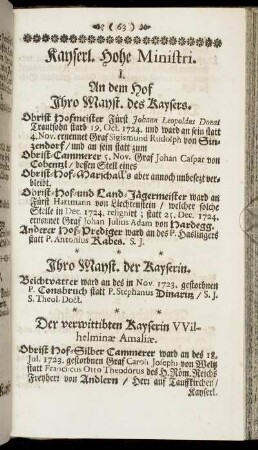 ( 63 )
Kayserl. Hohe Ministri.
I.
An dem Hof
Ihro Mayst. des Kaysers.
Obrist Hofmeister Fürst Johann Leopoldus Donat
Trautsohn starb 19. Oct. 1724. und ward an sein statt
4. Nov. ernennet Graf Sigismund Rudolph von Sin-
zendorf/ und an sein statt zum
Obrist-Cammerer 5. Nov. Graf Johan Caspar von
Cobentzl/ dessen Stell eines
Obrist-Hof-Marschall's aber annoch unbesetzt ver-
bleibt.
Obrist-Hof-und Land-Jägermeister ward an
Fürst Hartmann von Liechtenstein/ welcher solche
Stelle in Dec. 1724. resignirt; statt 25. Dec. 1724.
ernennet Graf Johan Julius Adam von Hardegg.
Anderer Hof-Prediger ward an des P. Haslingers
statt P. Antonius Kabes. S. J.
* * *
Ihro Mayst. der Kayserin.
Beichtvatter ward an des in Nov. 1723. gestorbnen
P. Consbruch statt P. Stephanus Dinaritz / S. J.
S. Theol. Doct.
* * *
Der verwittibten Kayserin VVil-
helminæ Amaliæ.
Obrist Hof-Silber Cammerer ward an des 18.
Jul. 1723. gestorbnen Graf Caroli Josephi von Weltz
statt Franciscus Otto Theodorus des H. Röm. Reichs
Freyherr von Andlern / Herr auf Tauffkirchen/
Kayserl.